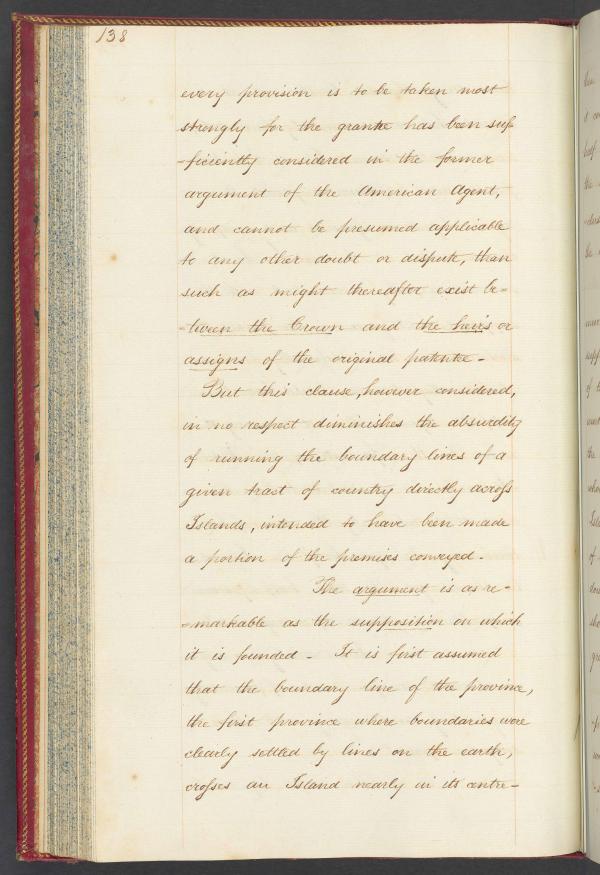 138
every provision is to be taken most
strongly for the grantee has been suf-
-ficiently considered in the former
argument of the American Agent,
and cannot be presumed applicable
to any other doubt or dispute, than
such as might thereafter exist be=
-tween the Crown and the heirs or
assigns of the original patentee -
But this clause, however considered,
in no respect diminishes the absurdity
of running the boundary lines of a
given tract of country directly across
Islands, intended to have been made
a portion of the premises conveyed -
The argument is as re-
=markable as the supposition on which
it is founded - It is first assumed
that the boundary line of the province,
the first province where boundaries were
clearly settled by lines on the earth,
crosses an Island nearly in its centre -